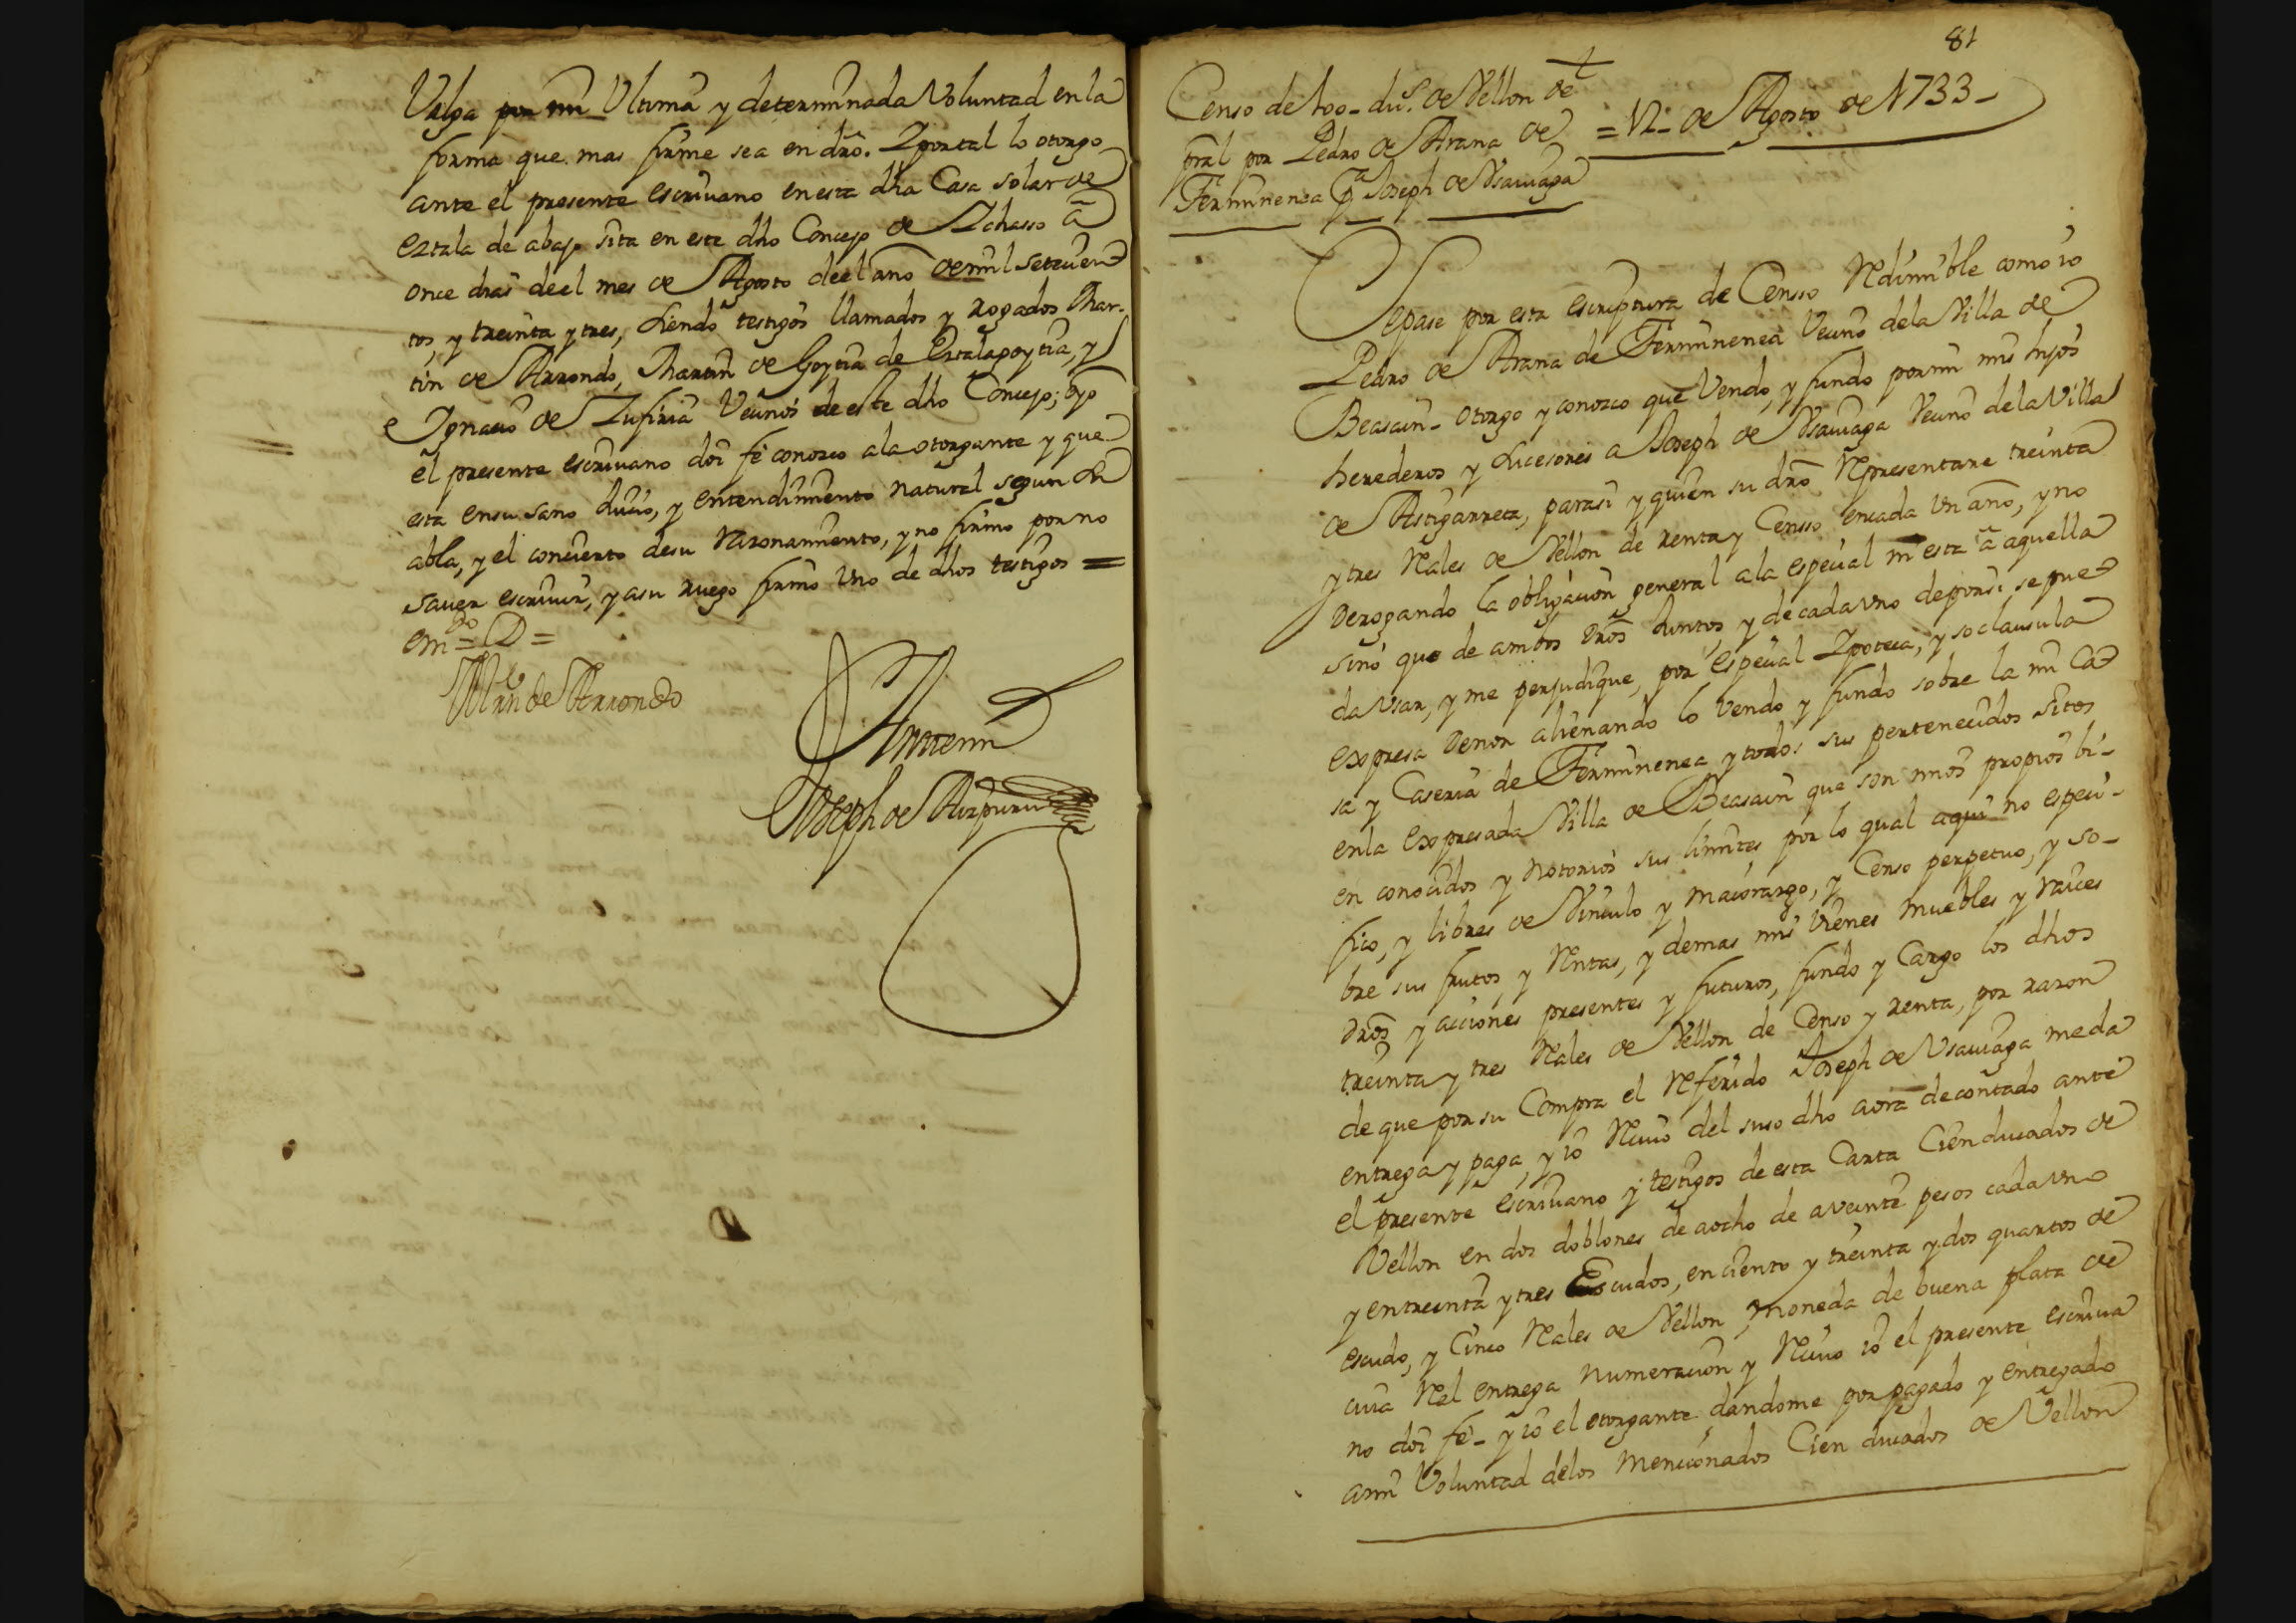 Valga por mi Ultima y determinada Voluntad en la
forma que mas firme sea en dro. Y por tal lo otorgo
ante el presente escriuano en esta dha Casa solar de
eztala de abajo sita en este dho Concejo de Ychasso a
once dias de el mes de Agosto de el año de mil setecien
tos, y treinta y tres, siendo testigos llamados y rogados Mar-
tin de Arrondo, Martin de Goytia de Eztalagoytia, y
Ygnacio de Zufiria Vecinos de este dho Concejo; e yo
el presente escriuano doi fe conozco a la otorgante y que
esta en su sano Juicio, y entendimiento natural segun su
abla, y el concierto de su razonamiento, y no firmo por no
sauer escriuir, y a su ruego firmo vno de dhos testigos =
emdo = D =
Mrn de Arrondo
Ante mi
Joseph de Aizpuru
81
Censo de 100 - dus. de Vellon de
pral por Pedro de Arana de
Ferminenea pa Joseph de Vsauiaga
= 12 - de Agosto de 1733 -
Sepase por esta escriptura de Censso Redimible como io
Pedro de Arana de Ferminenea Vecino de la Villa de
Beasain - otorgo y conozco que Vendo, y fundo por mi mis hijos
herederos y sucesores a Joseph de Vsauiaga Vecino de la Villa
de Astigarreta, para si y quien su dro Representare treinta
y tres Reales de Vellon de renta y Censso en cada Vn año, y no
Derogando la obligacion general a la especial ni esta a aquella
sino que de ambos dros Juntos, y de cada vno de por si se pue
da vsar, y me perjudique, por especial Ypoteca, y so clausula
expresa de non alienando lo Vendo y fundo sobre la mi Ca
sa y Caseria de Ferminenea y todos sus pertenecidos sitos
en la expresada Villa de Beasain que son mios propios bi-
en conocidos y notorios sus limites por lo qual aqui no especi-
fico, y libres de Vinculo y maiorazgo, y Censo perpetuo, y so-
bre sus frutos, y Rentas, y demas mis bienes muebles y raices
dros y acciones presentes y futuros, fundo y Cargo los dhos
treinta y tres Reales de Vellon de Censo y renta, por razon
de que por su Compra el Referido Joseph de Vsauiaga me da
entrega y paga, y io Reciuo del suso dho aora de contado ante
el presente escriuano y testigos de esta Carta Cien ducados de
Vellon en dos doblones de a ocho de a veinte pesos cada vno
y en treinta y tres Escudos, en ciento y treinta y dos quartos de
escudo, y Cinco Reales de Vellon moneda de buena plata de
cuia Rel entrega numeracion y Reciuo io el presente escriua
no doi fe - y io el otorgante dandome por pagado y entregado
a mi Voluntad de los mencionados Cien ducados de Vellon